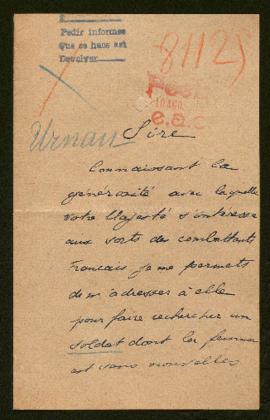 Pedir informes
Que se haga est
Devolver
81125
10 AGO.
e.a.c
Urnau
Sire
Connaissant la
générosité avec laquelle
votre Majesté s'intéresse
aux sorts des combattants
Français je me permets
de m'adresser à elle
pour faire rechercher un
soldat dont la femme
est sans nouvelles